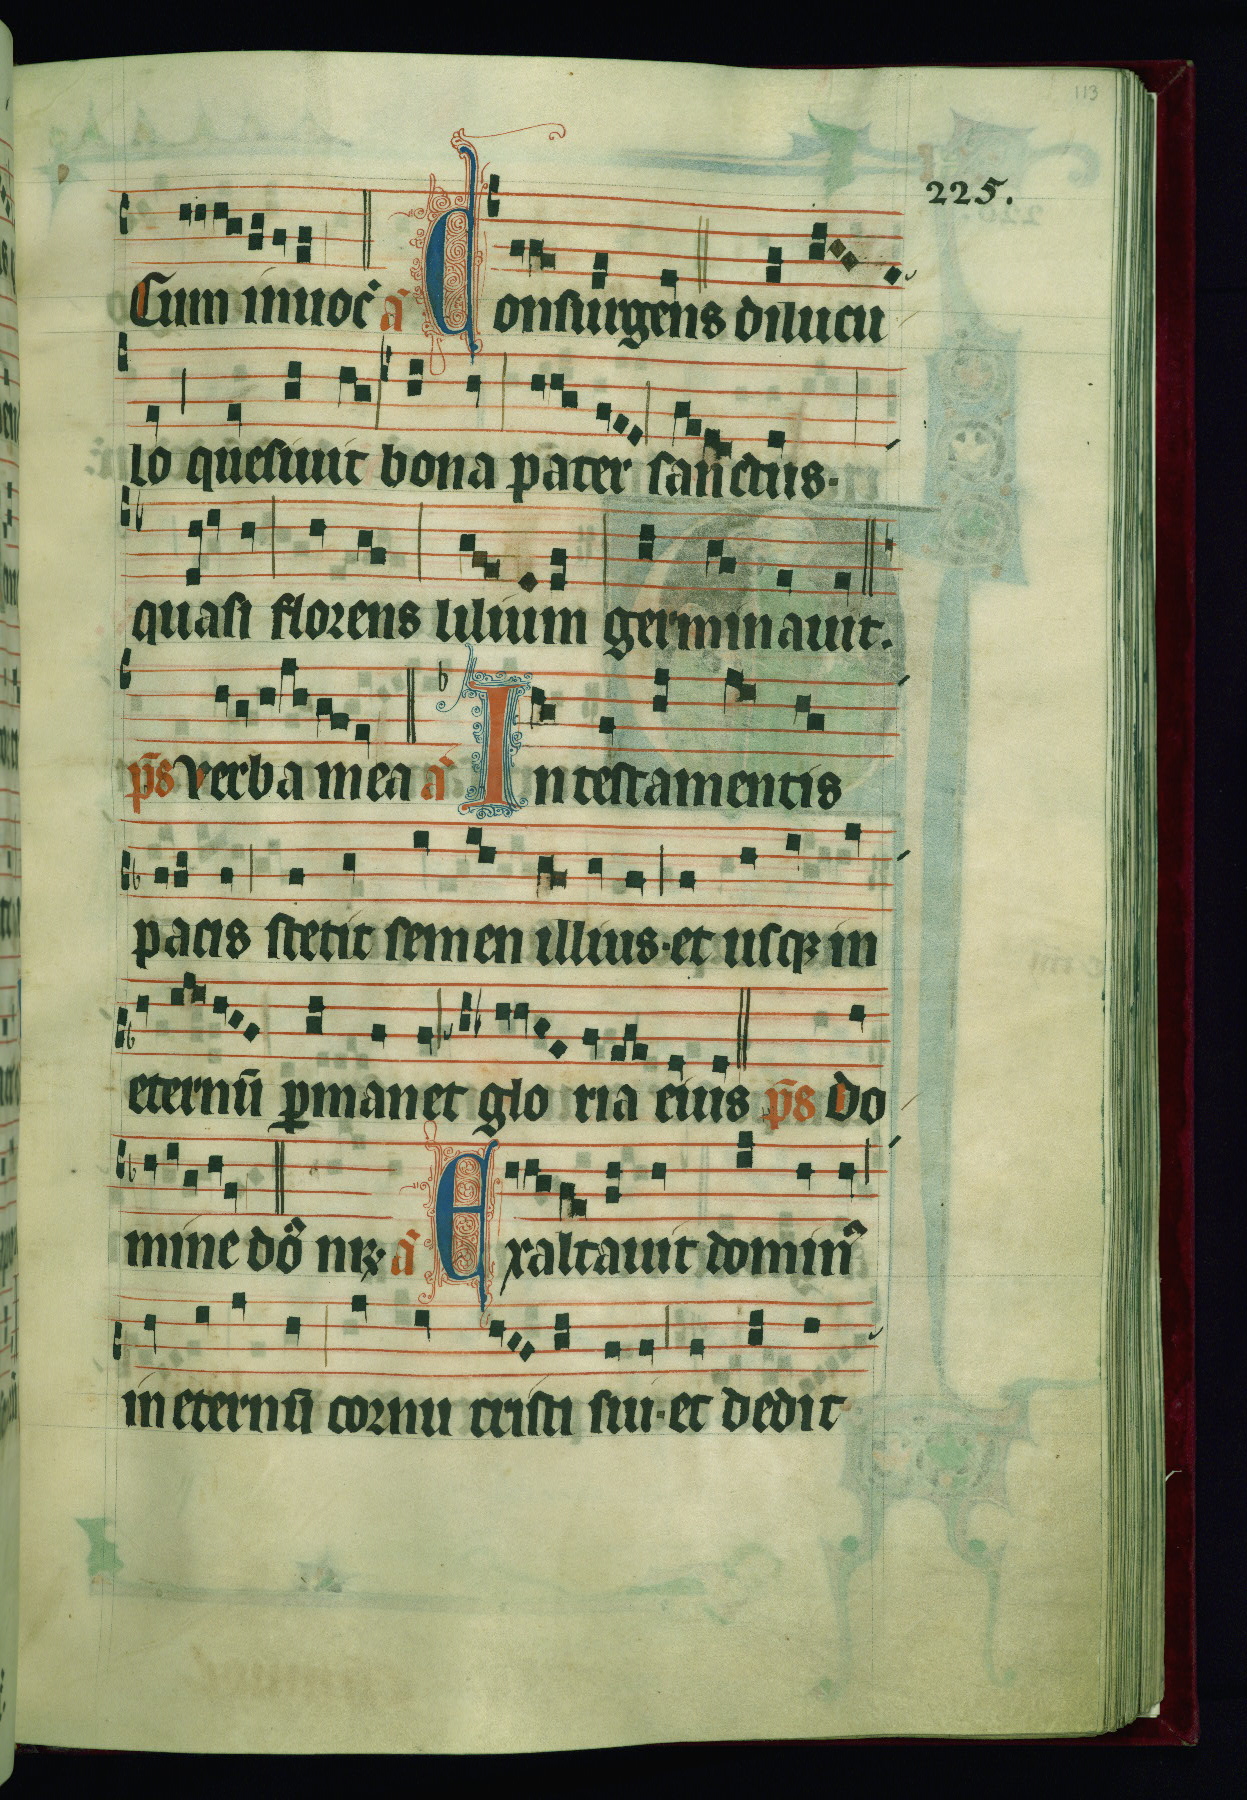 113
225.
Cum inuoc̄ ā Consurgens dilucu
lo quesiuit bona pater sanctus.
quasi florens lilium germinauit.
p̄s verba mea ā In testamentis
pacis stetit semen illius. et usqꝫ in
eternū ꝑmanet gloria eius p̄s Do
mine dō nr̄ ā Exaltauit domin᷒
in eternū cornu cristi sui. et dedit